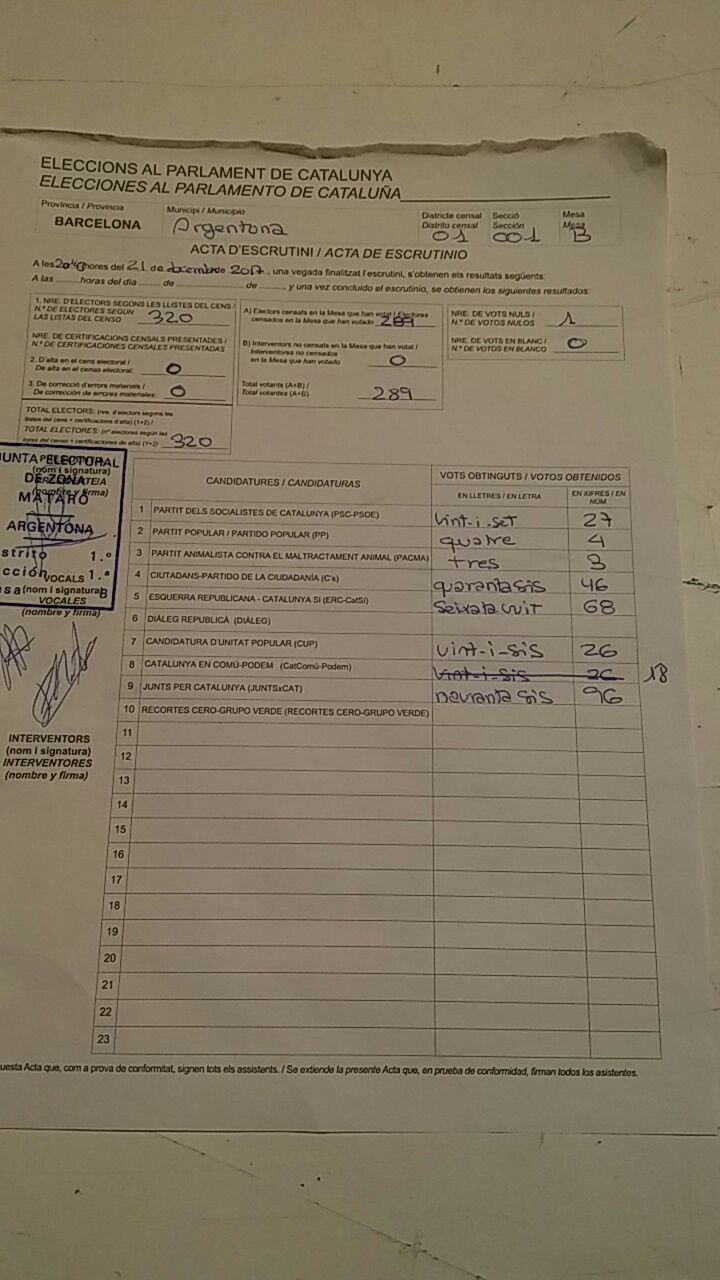 ELECCIONS AL PARLAMENT DE CATALUNYA
ELECCIONES AL PARLAMENTO DE CATALUÑA
Província / Provincia
BARCELONA
Municipi / Municipio
Argentona
Districte censal
Distrito censal
01
Secció
Sección
001
Mesa
Mesa
B
ACTA D'ESCRUTINI / ACTA DE ESCRUTINIO
A les 20:43 hores del 21 de desembre de 2017, una vegada finalitzat l'escrutini, s'obtenen els resultats següents:
A las ........horas del día ........ de ........ de ........, y una vez concluido el escrutinio, se obtienen los siguientes resultados:
1. NRE. D'ELECTORS SEGONS LES LLISTES DEL CENS /
N.º DE ELECTORES SEGÚN
LAS LISTAS DEL CENSO 320
NRE. DE CERTIFICACIONS CENSALS PRESENTADES /
N.º DE CERTIFICACIONES CENSALES PRESENTADAS
2. D'alta en el cens electoral /
De alta en el censo electoral: 0
3. De correcció d'errors materials /
De corrección de errores materiales: 0
TOTAL ELECTORS: (nre. d'electors segons les
llistes del cens + certificacions d'alta) (1+2) /
TOTAL ELECTORES: (nº electores según las
listas del censo + certificaciones de alta) (1+2) 320
A) Electors censats en la Mesa que han votat / Electores
censados en la Mesa que han votado 289
B) Interventors no censats en la Mesa que han votat /
Interventores no censados
en la Mesa que han votado 0
Total votants (A+B) /
Total votantes (A+B) 289
NRE. DE VOTS NULS /
N.º DE VOTOS NULOS 1
NRE. DE VOTS EN BLANC /
N.º DE VOTOS EN BLANCO 0
JUNTA ELECTORAL
DE ZONA
MATARÓ
ARGENTONA
strito 1.º
cción 1.ª
sa B
(nom i signatura)
VOCALS
(nom i signatura)
VOCALES
(nombre y firma)
INTERVENTORS
(nom i signatura)
INTERVENTORES
(nombre y firma)
CANDIDATURES / CANDIDATURAS
VOTS OBTINGUTS / VOTOS OBTENIDOS
EN LLETRES / EN LETRA
EN XIFRES / EN NÚM.
1 PARTIT DELS SOCIALISTES DE CATALUNYA (PSC-PSOE) Vint-i-set 27
2 PARTIT POPULAR / PARTIDO POPULAR (PP) quatre 4
3 PARTIT ANIMALISTA CONTRA EL MALTRACTAMENT ANIMAL (PACMA) tres 3
4 CIUTADANS-PARTIDO DE LA CIUDADANÍA (C's) quaranta sis 46
5 ESQUERRA REPUBLICANA - CATALUNYA SÍ (ERC-CatSÍ) Seixata vuit 68
6 DIÀLEG REPUBLICÀ (DIÀLEG)
7 CANDIDATURA D'UNITAT POPULAR (CUP) vint-i-sis 26
8 CATALUNYA EN COMÚ-PODEM (CatComú-Podem) vint-i-sis 26 18
9 JUNTS PER CATALUNYA (JUNTSxCAT) novranta sis 96
10 RECORTES CERO-GRUPO VERDE (RECORTES CERO-GRUPO VERDE)
11
12
13
14
15
16
17
18
19
20
21
22
23
uesta Acta que, com a prova de conformitat, signen tots els assistents. / Se extiende la presente Acta que, en prueba de conformidad, firman todos los asistentes.